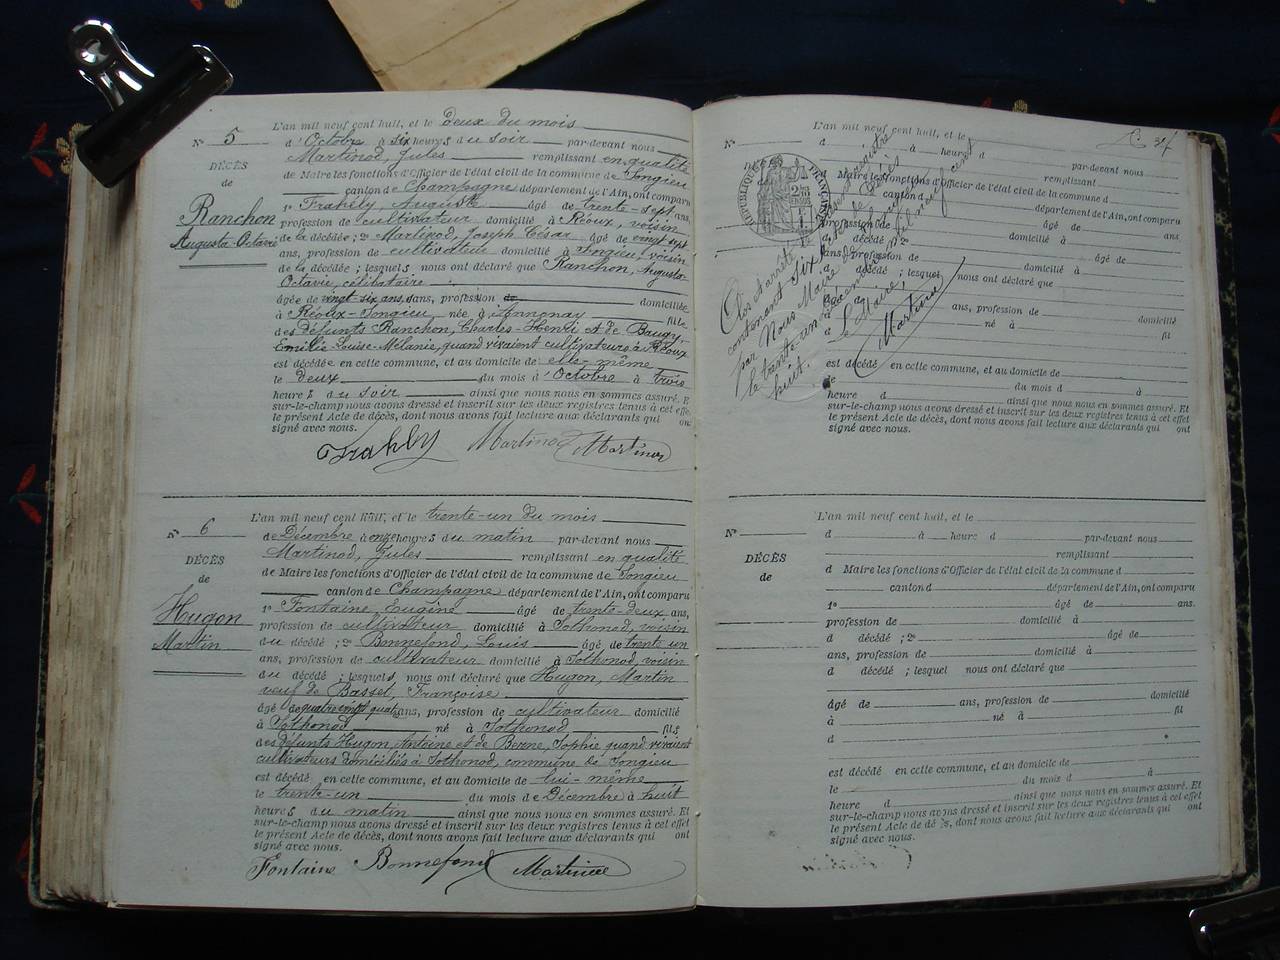 N° 5
DÉCÈS
de
Ranchon
Augusta-Octavie
L'an mil neuf cent huit, et le deux du mois
d'Octobre à six heures du soir par-devant nous
Martinod, Jules remplissant en qualité
de Maire les fonctions d'Officier de l'état civil de la commune de Songieu
canton de Champagne département de l'Ain, ont comparu
1° Frahély, Auguste âgé de trente-sept ans,
profession de cultivateur domicilié à Réoux, voisin
de la décédée ; 2° Martinod, Joseph César âgé de vingt sept
ans, profession de cultivateur domicilié à Songieu, voisin
de la décédée ; lesquels nous ont déclaré que Ranchon, Augusta-
Octavie, célibataire
âgée de vingt-six ans, ans, profession de domiciliée
à Réoux-Songieu, née à Annonay fille
des défunts Ranchon, Charles-Henri et de Baugy,
Emilie-Louise-Mélanie, quand vivaient cultivateurs à Réoux
est décédée en cette commune, et au domicile de elle-même
le deux du mois d'Octobre à trois
heures du soir ainsi que nous nous en sommes assuré. Et
sur-le-champ nous avons dressé et inscrit sur les deux registres tenus à cet effet
le présent Acte de décès, dont nous avons fait lecture aux déclarants qui ont
signé avec nous.
Frahély Martinod Martinod
N° 6
DÉCÈS
de
Hugon
Martin
L'an mil neuf cent huit, et le trente-un du mois
de Décembre à onze heures du matin par-devant nous
Martinod, Jules remplissant en qualité
de Maire les fonctions d'Officier de l'état civil de la commune de Songieu
canton de Champagne département de l'Ain, ont comparu
1° Fontaine, Eugène âgé de trente-deux ans,
profession de cultivateur domicilié à Sothonod, voisin
du décédé ; 2° Bonnefond, Louis âgé de trente un
ans, profession de cultivateur domicilié à Sothonod, voisin
du décédé ; lesquels, nous ont déclaré que Hugon, Martin
veuf de Basset, Françoise
âgé de quatre vingt quatre ans, profession de cultivateur domicilié
à Sothonod né à Sothonod fils
des défunts Hugon, Antoine et de Berne, Sophie quand vivaient
cultivateurs domiciliés à Sothonod, commune de Songieu
est décédé en cette commune, et au domicile de lui-même
le trente-un du mois de Décembre à huit
heures du matin ainsi que nous nous en sommes assuré. Et
sur-le-champ nous avons dressé et inscrit sur les deux registres tenus à cet effet
le présent Acte de décès, dont nous avons fait lecture aux déclarants qui ont
signé avec nous.
Fontaine Bonnefond Martinod
N°
L'an mil neuf cent huit, et le
d à heure d par-devant nous
remplissant
Maire les fonctions d'Officier de l'état civil de la commune d
canton d département de l'Ain, ont comparu
âgé de ans
profession de domicilié à
d décédé ; 2° âgé de
ans, profession de domicilié à
d décédé ; lesquel nous ont déclaré que
ans, profession de domicilié
à né à fil
d
est décédé en cette commune, et au domicile de
du mois d à
heure d ainsi que nous nous en sommes assuré. Et
sur-le-champ nous avons dressé et inscrit sur les deux registres tenus à cet effet
le présent Acte de décès, dont nous avons fait lecture aux déclarants qui ont
signé avec nous.
RÉPUBLIQUE FRANÇAISE
Clos et arrêté le présent registre
contenant six actes de Décès
par Nous Maire de
le trente-un Décembre mil neuf cent
huit.
Le Maire,
Martinod
N°
DÉCÈS
de
L'an mil neuf cent huit, et le
d à heure d par-devant nous
remplissant
d Maire les fonctions d'Officier de l'état civil de la commune d
canton d département de l'Ain, ont comparu
1° âgé de ans.
profession de domicilié à
d décédé ; 2° âgé de
ans, profession de domicilié à
d décédé ; lesquel nous ont déclaré que
âgé de ans, profession de domicilié
à né à fil
d
est décédé en cette commune, et au domicile de
le du mois d à
heure d ainsi que nous nous en sommes assuré. Et
sur-le-champ nous avons dressé et inscrit sur les deux registres tenus à cet effet
le présent Acte de décès, dont nous avons fait lecture aux déclarants qui ont
signé avec nous.